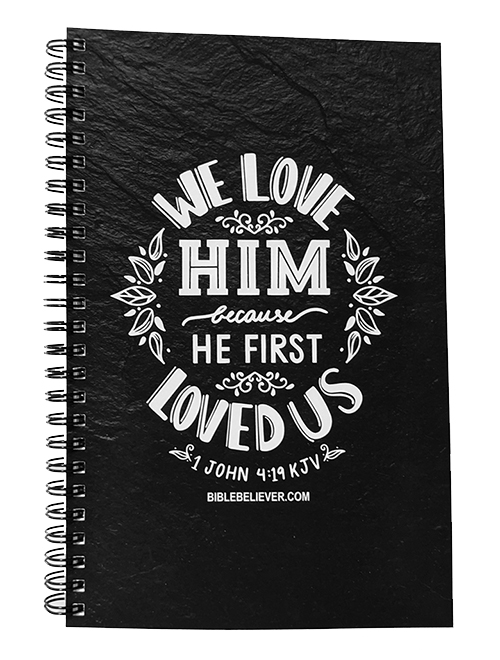 WE LOVE
HIM
because
HE FIRST
LOVED US
1 JOHN 4:19 KJV
BIBLEBELIEVER.COM